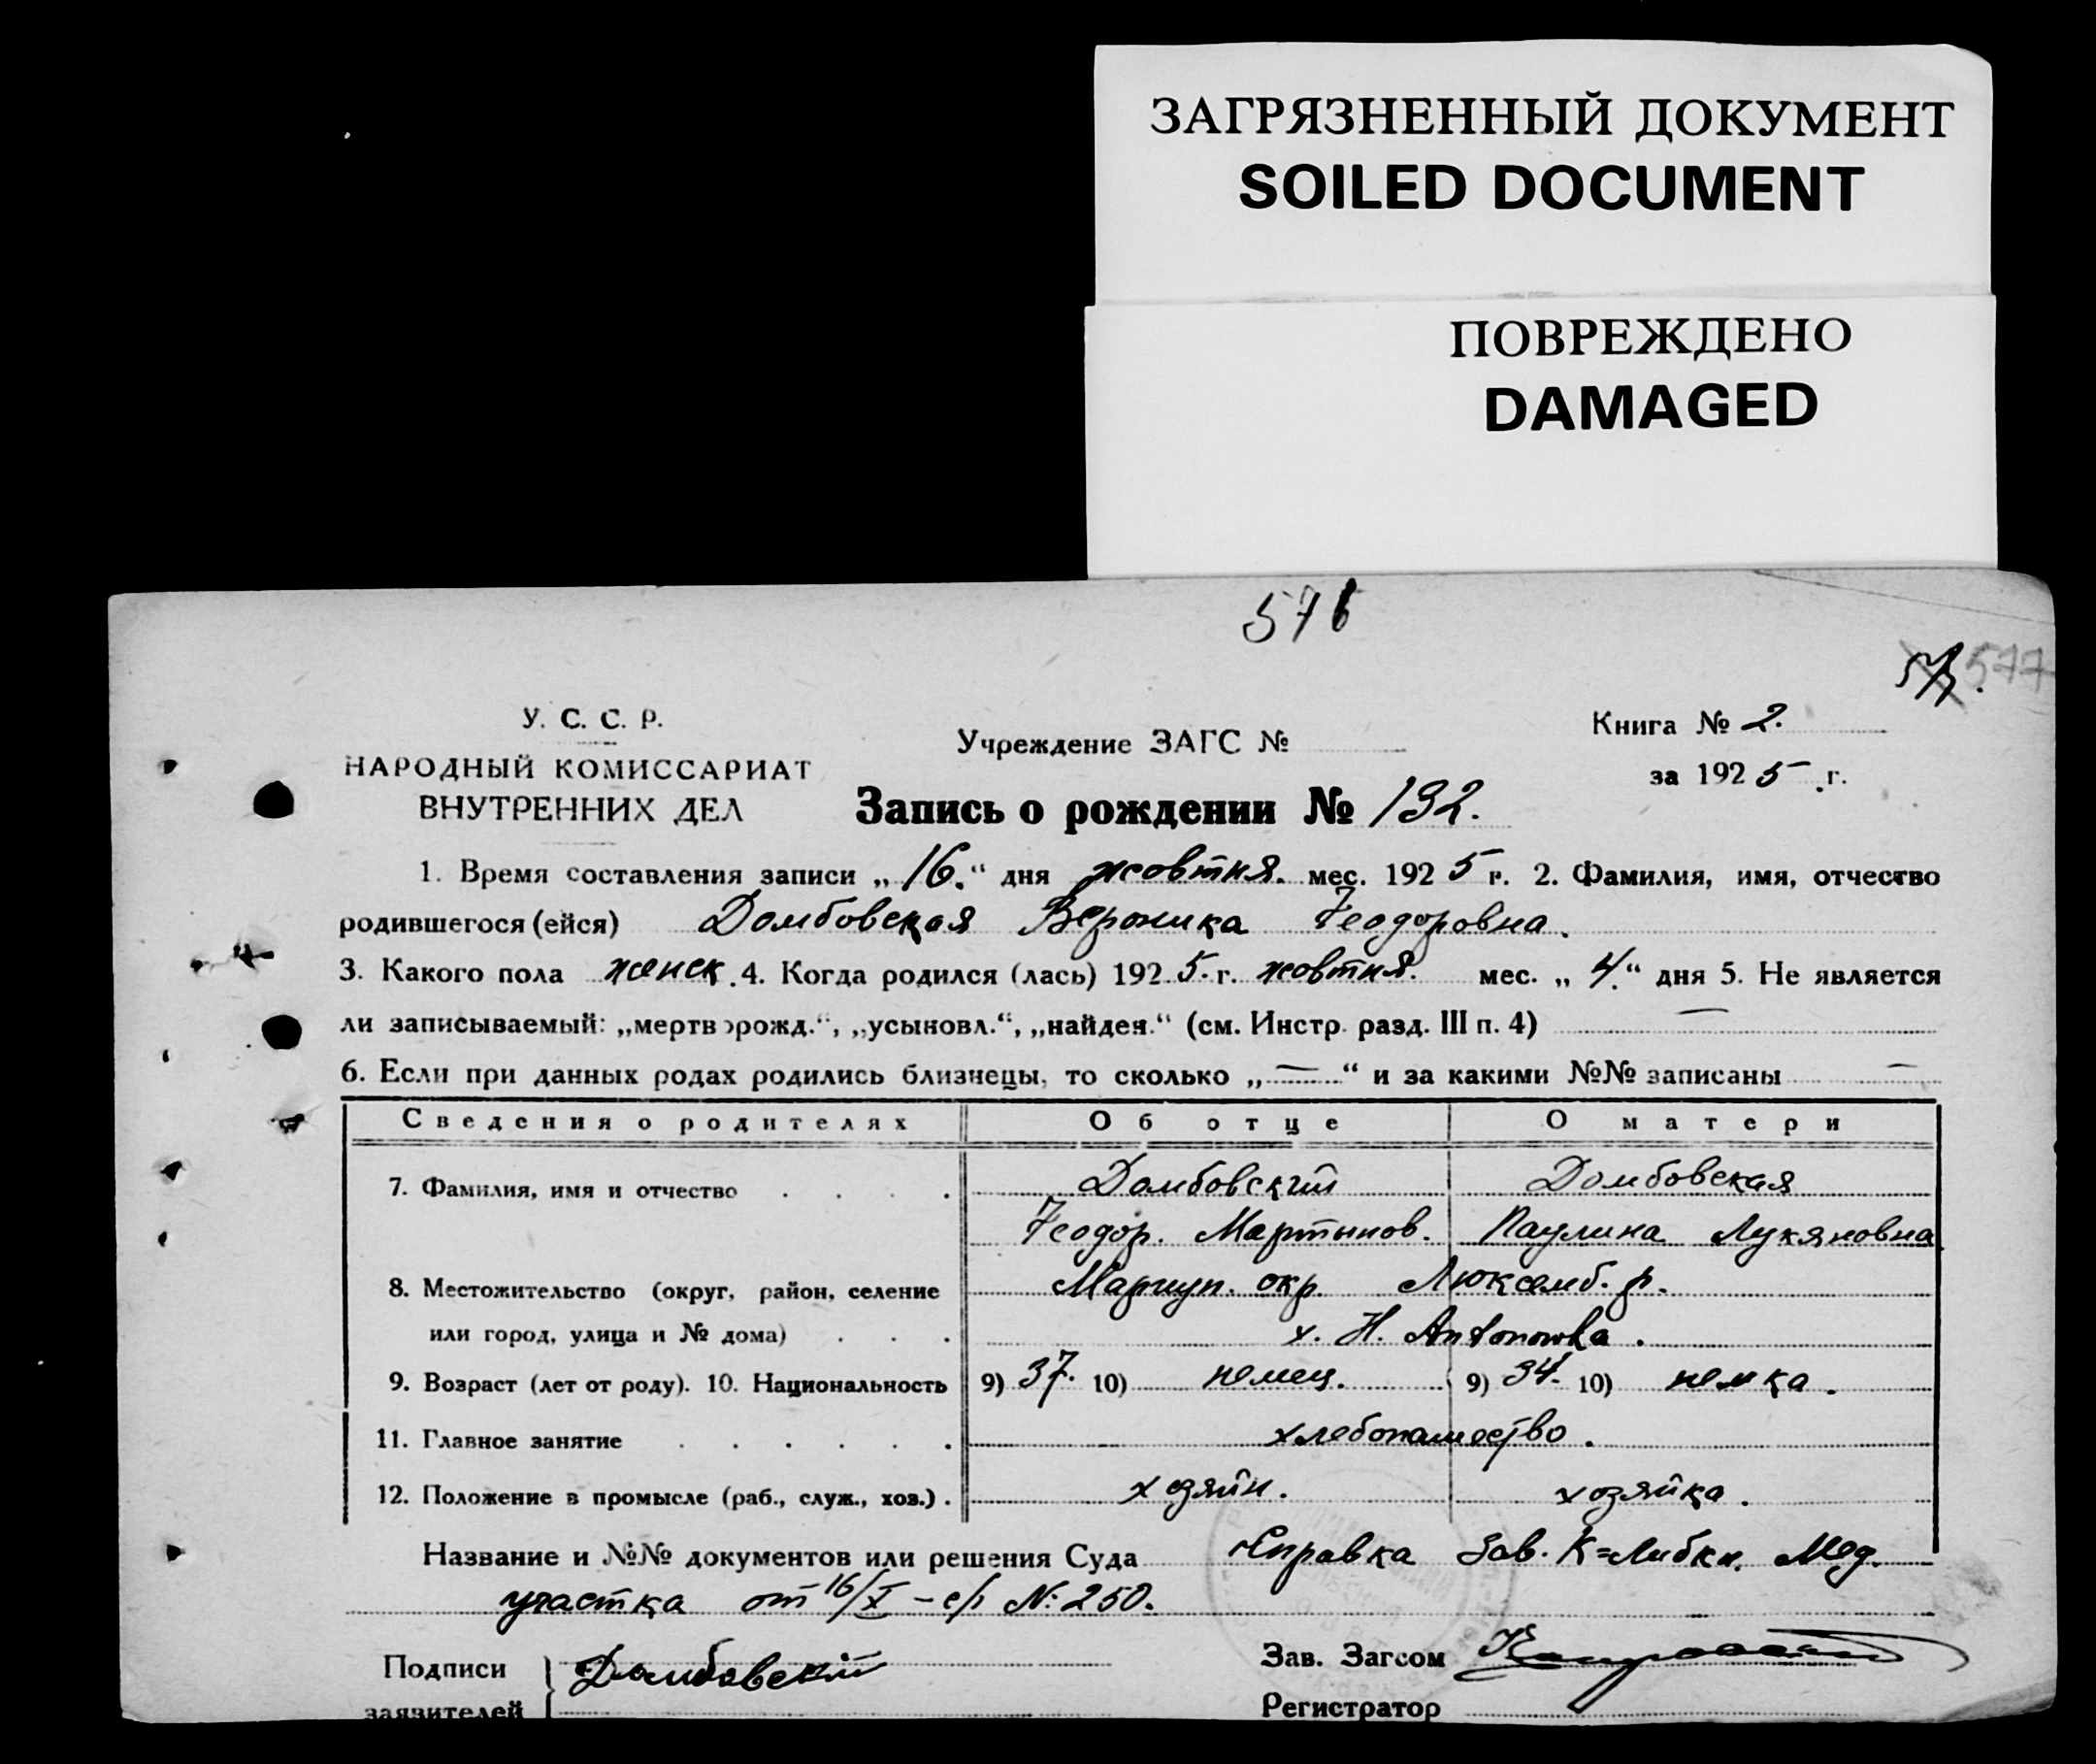 ЗАГРЯЗНЕННЫЙ ДОКУМЕНТ
SOILED DOCUMENT
ПОВРЕЖДЕНО
DAMAGED
576
577
У. С. С. Р.
НАРОДНЫЙ КОМИССАРИАТ
ВНУТРЕННИХ ДЕЛ
Учреждение ЗАГС №
Книга № 2.
за 1925 г.
Запись о рождении № 192.
1. Время составления записи „16.“ дня жовтня. мес. 1925 г. 2. Фамилия, имя, отчество
родившегося (ейся) Домбовская Вероника Теодоровна.
3. Какого пола женск. 4. Когда родился (лась) 1925. г. жовтня. мес. „4.“ дня 5. Не является
ли записываемый: „мертворожд.“, „усыновл.“, „найден.“ (см. Инстр. разд. III п. 4) —
6. Если при данных родах родились близнецы, то сколько „—“ и за какими №№ записаны —
Сведения о родителях Об отце О матери
7. Фамилия, имя и отчество . . . . Домбовский Домбовская
Теодор. Мартынов. Паулина Лукяновна
8. Местожительство (округ, район, селение Мариуп. окр. Люксемб. р.
или город, улица и № дома) . . . х. Н. Antonowka.
9. Возраст (лет от роду). 10. Национальность 9) 37. 10) немец. 9) 34. 10) немка.
11. Главное занятие . . . . . . хлебопашество.
12. Положение в промысле (раб., служ., хоз.) . хозяин. хозяйка.
Название и №№ документов или решения Суда Справка Зав. К=Либкн. Мед.
участка от 16/X – с/г №: 250.
Подписи Домбовский Зав. Загсом
заявителей Регистратор